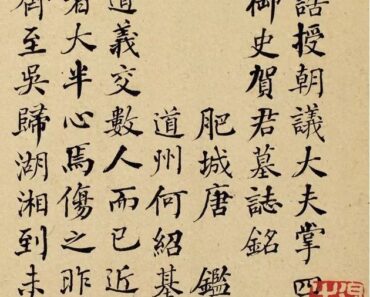 誥授朝議大夫掌四
御史賀君墓誌銘
肥城唐鑑
道州何紹基
道義交數人而已近
者大半心焉傷之昨
至吳歸湖湘到未